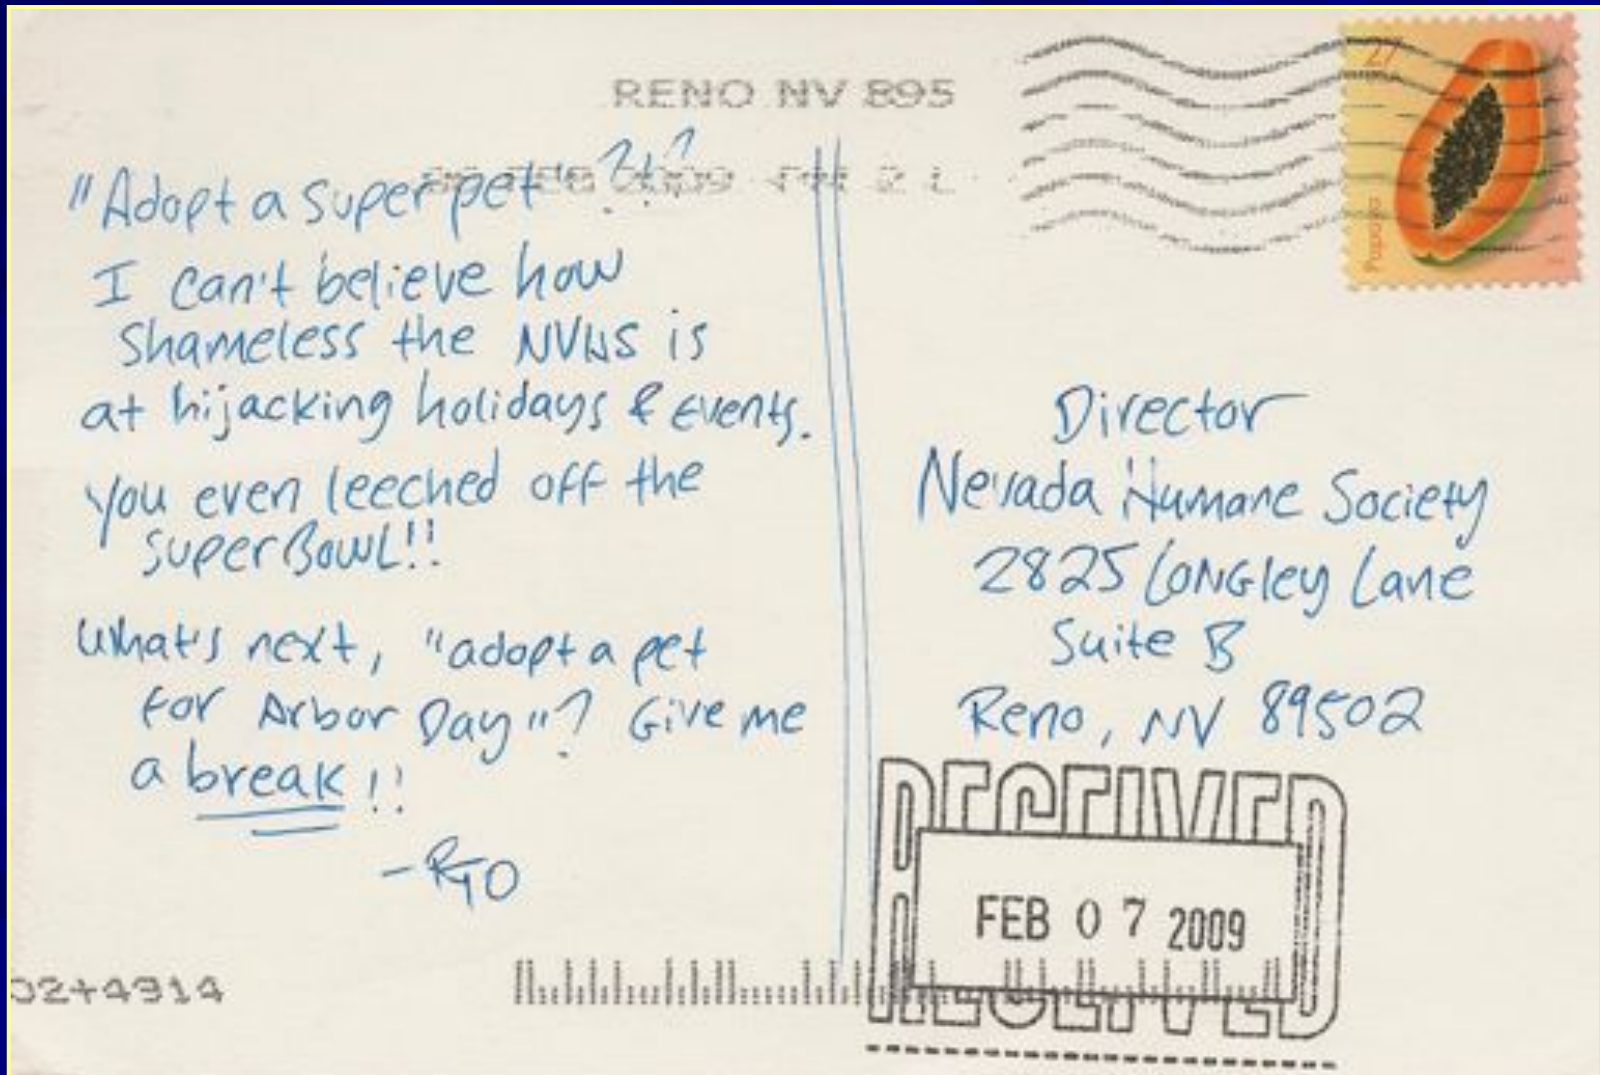 RENO NV 895
FEB 2009 PM 2 L
27
Papaya
"Adopt a super pet" ?!?
I can't believe how
shameless the NVHS is
at hijacking holidays & events.
You even leeched off the
SuperBowl!!
What's next, "adopt a pet
for Arbor Day"? Give me
a break!!
-RTO
Director
Nevada Humane Society
2825 Longley Lane
Suite B
Reno, NV 89502
RECEIVED
FEB 07 2009
RECEIVED
02+4914